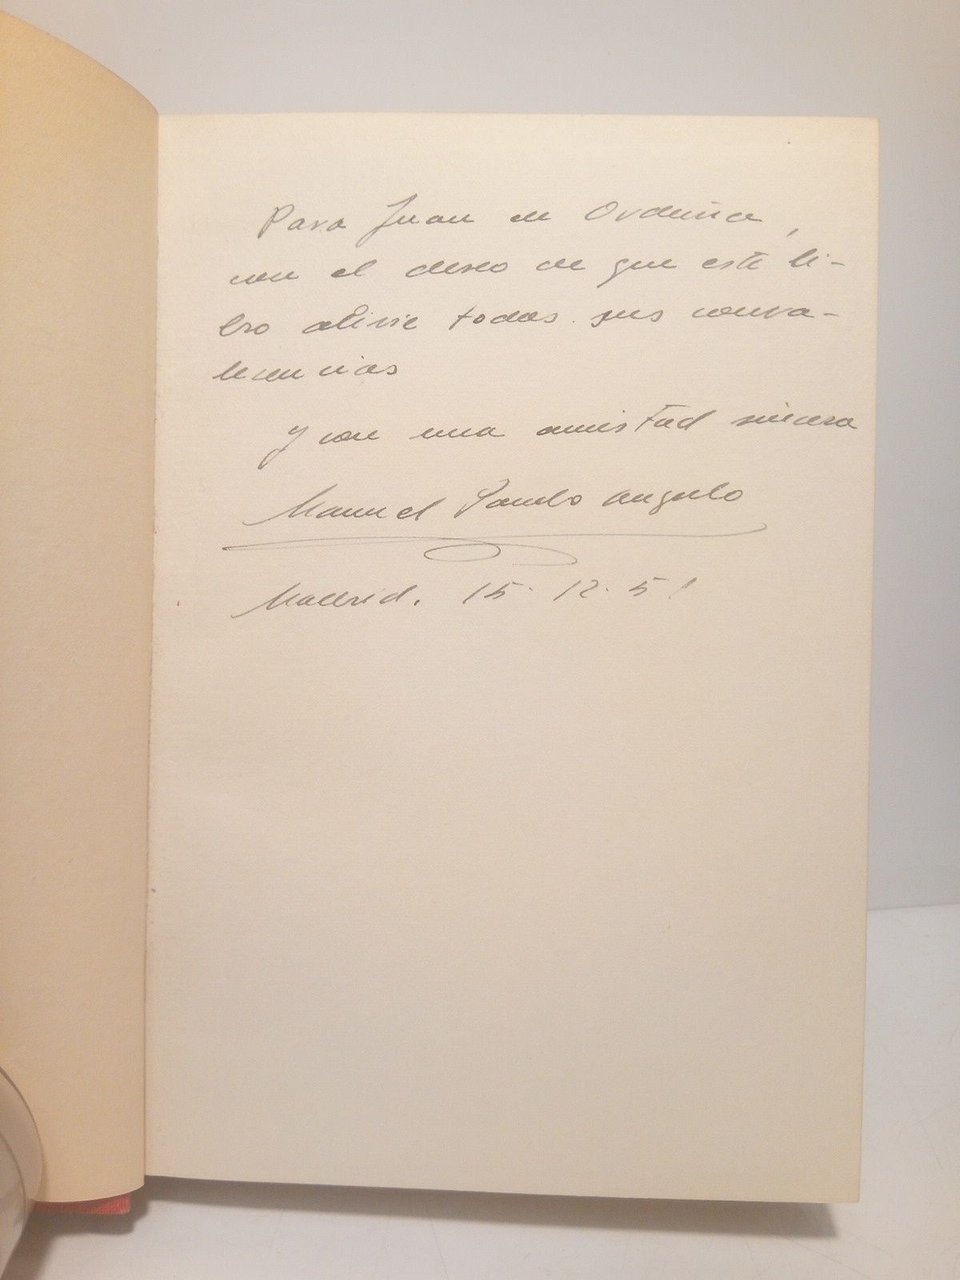 Para Juan de Orduña,
con el deseo de que este li-
bro alivie todas sus conva-
lecencias
y con una amistad sincera
Manuel Pombo Angulo
Madrid. 15-12-51